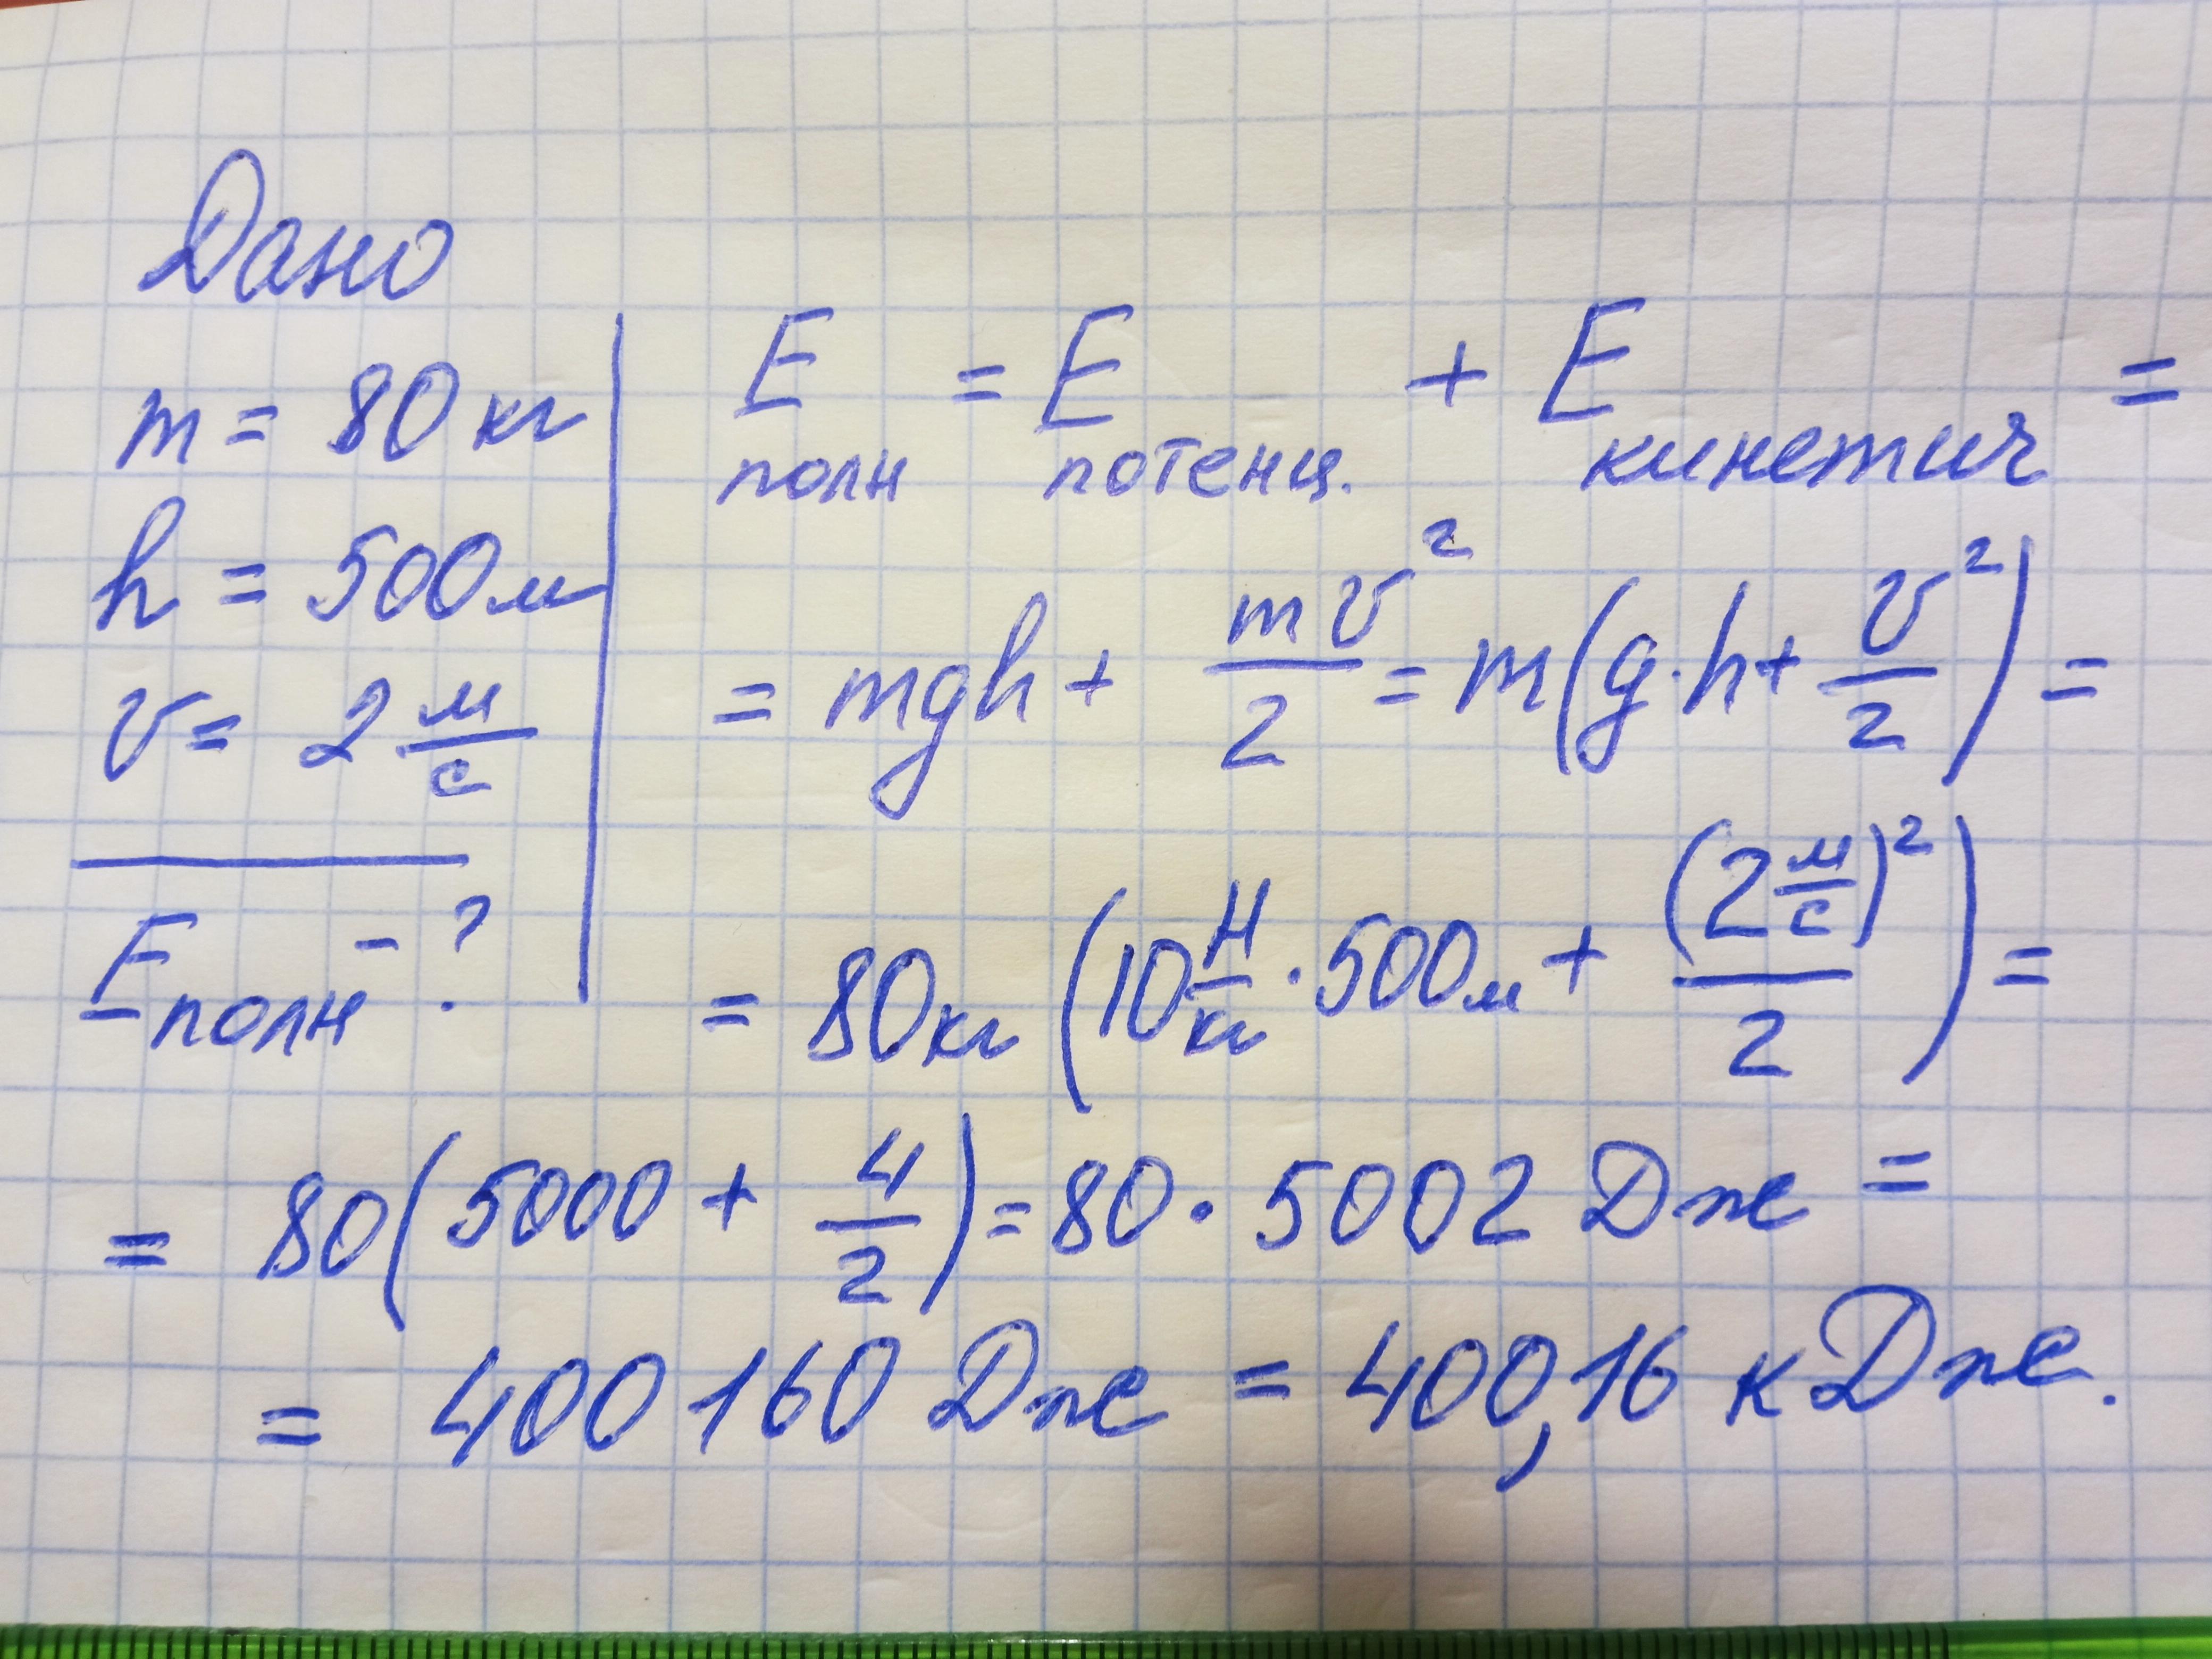 Дано
m = 80 кг
h = 500 м
v = 2 м/с
Eполн - ?
Eполн = Eпотенц. + Eкинетич =
= mgh + mv²/2 = m(g·h + v²/2) =
= 80 кг (10 Н/кг · 500 м + (2 м/с)²/2) =
= 80(5000 + 4/2) = 80 · 5002 Дж =
= 400 160 Дж = 400,16 кДж.